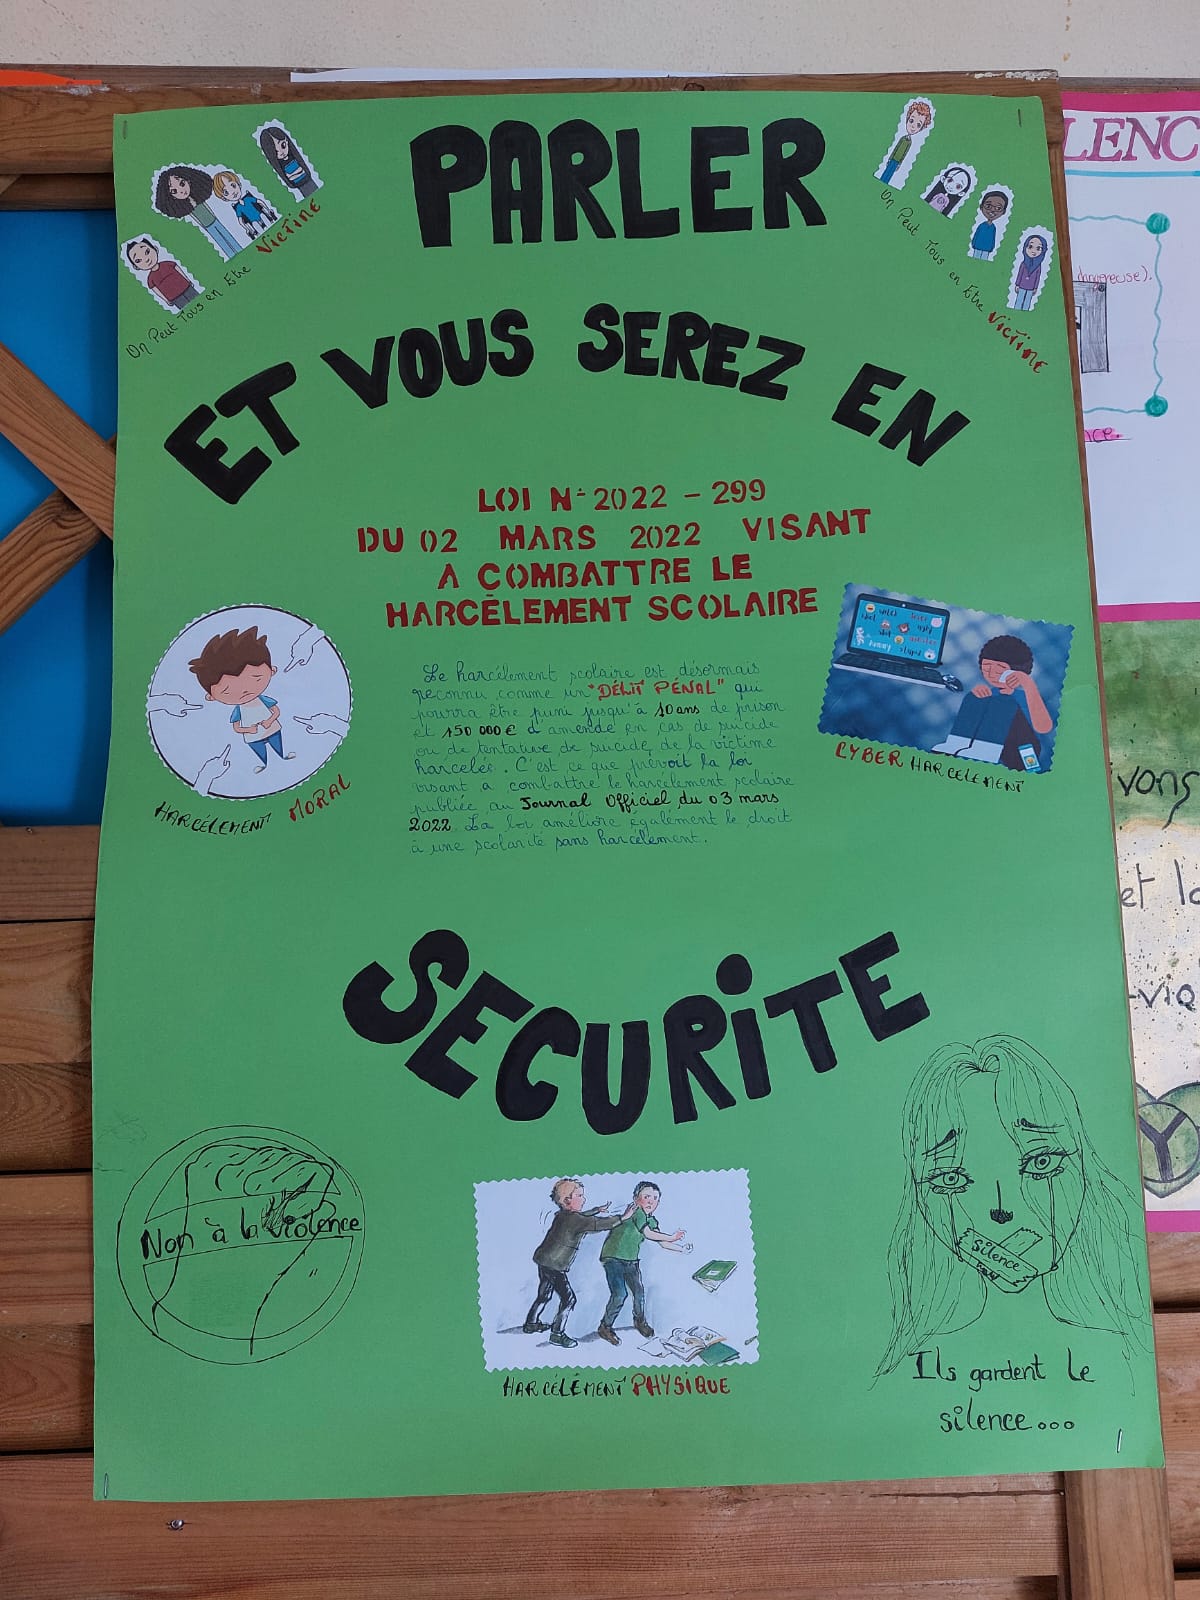 PARLER
On Peut Tous en Etre VICTIME
On Peut Tous en Etre VICTIME
ET VOUS SEREZ EN
LOI N° 2022 - 299
DU 02 MARS 2022 VISANT
A COMBATTRE LE
HARCÉLEMENT SCOLAIRE
Le harcélement scolaire est désormais
reconnu comme un "DÉLIT PÉNAL" qui
pourra être puni jusqu'à 10 ans de prison
et 150 000 € d'amende en cas de suicide
ou de tentative de suicide de la victime
harcelée. C'est ce que prévoit la loi
visant à combattre le harcélement scolaire
publiée au Journal Officiel du 03 mars
2022. La loi améliore également le droit
à une scolarité sans harcélement.
HARCÉLEMENT MORAL
CYBER HARCELEMENT
SECURITE
Non à la violence
HARCÉLÉMENT PHYSIQUE
silence
Ils gardent le
silence...
LENC
dangereuse).
nce.
vons
et la
-vio
Y